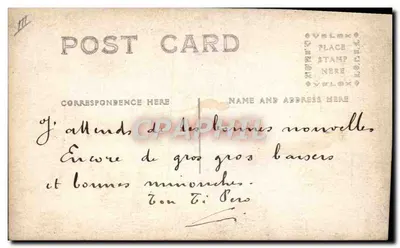 III
POST CARD
VELOX
PLACE
STAMP
HERE
VELOX
CORRESPONDENCE HERE
NAME AND ADDRESS HERE
CPAPHIL
J'attends de tes bonnes nouvelles
Encore de gros gros baisers
et bonnes minouches.
Ton Ti Pero